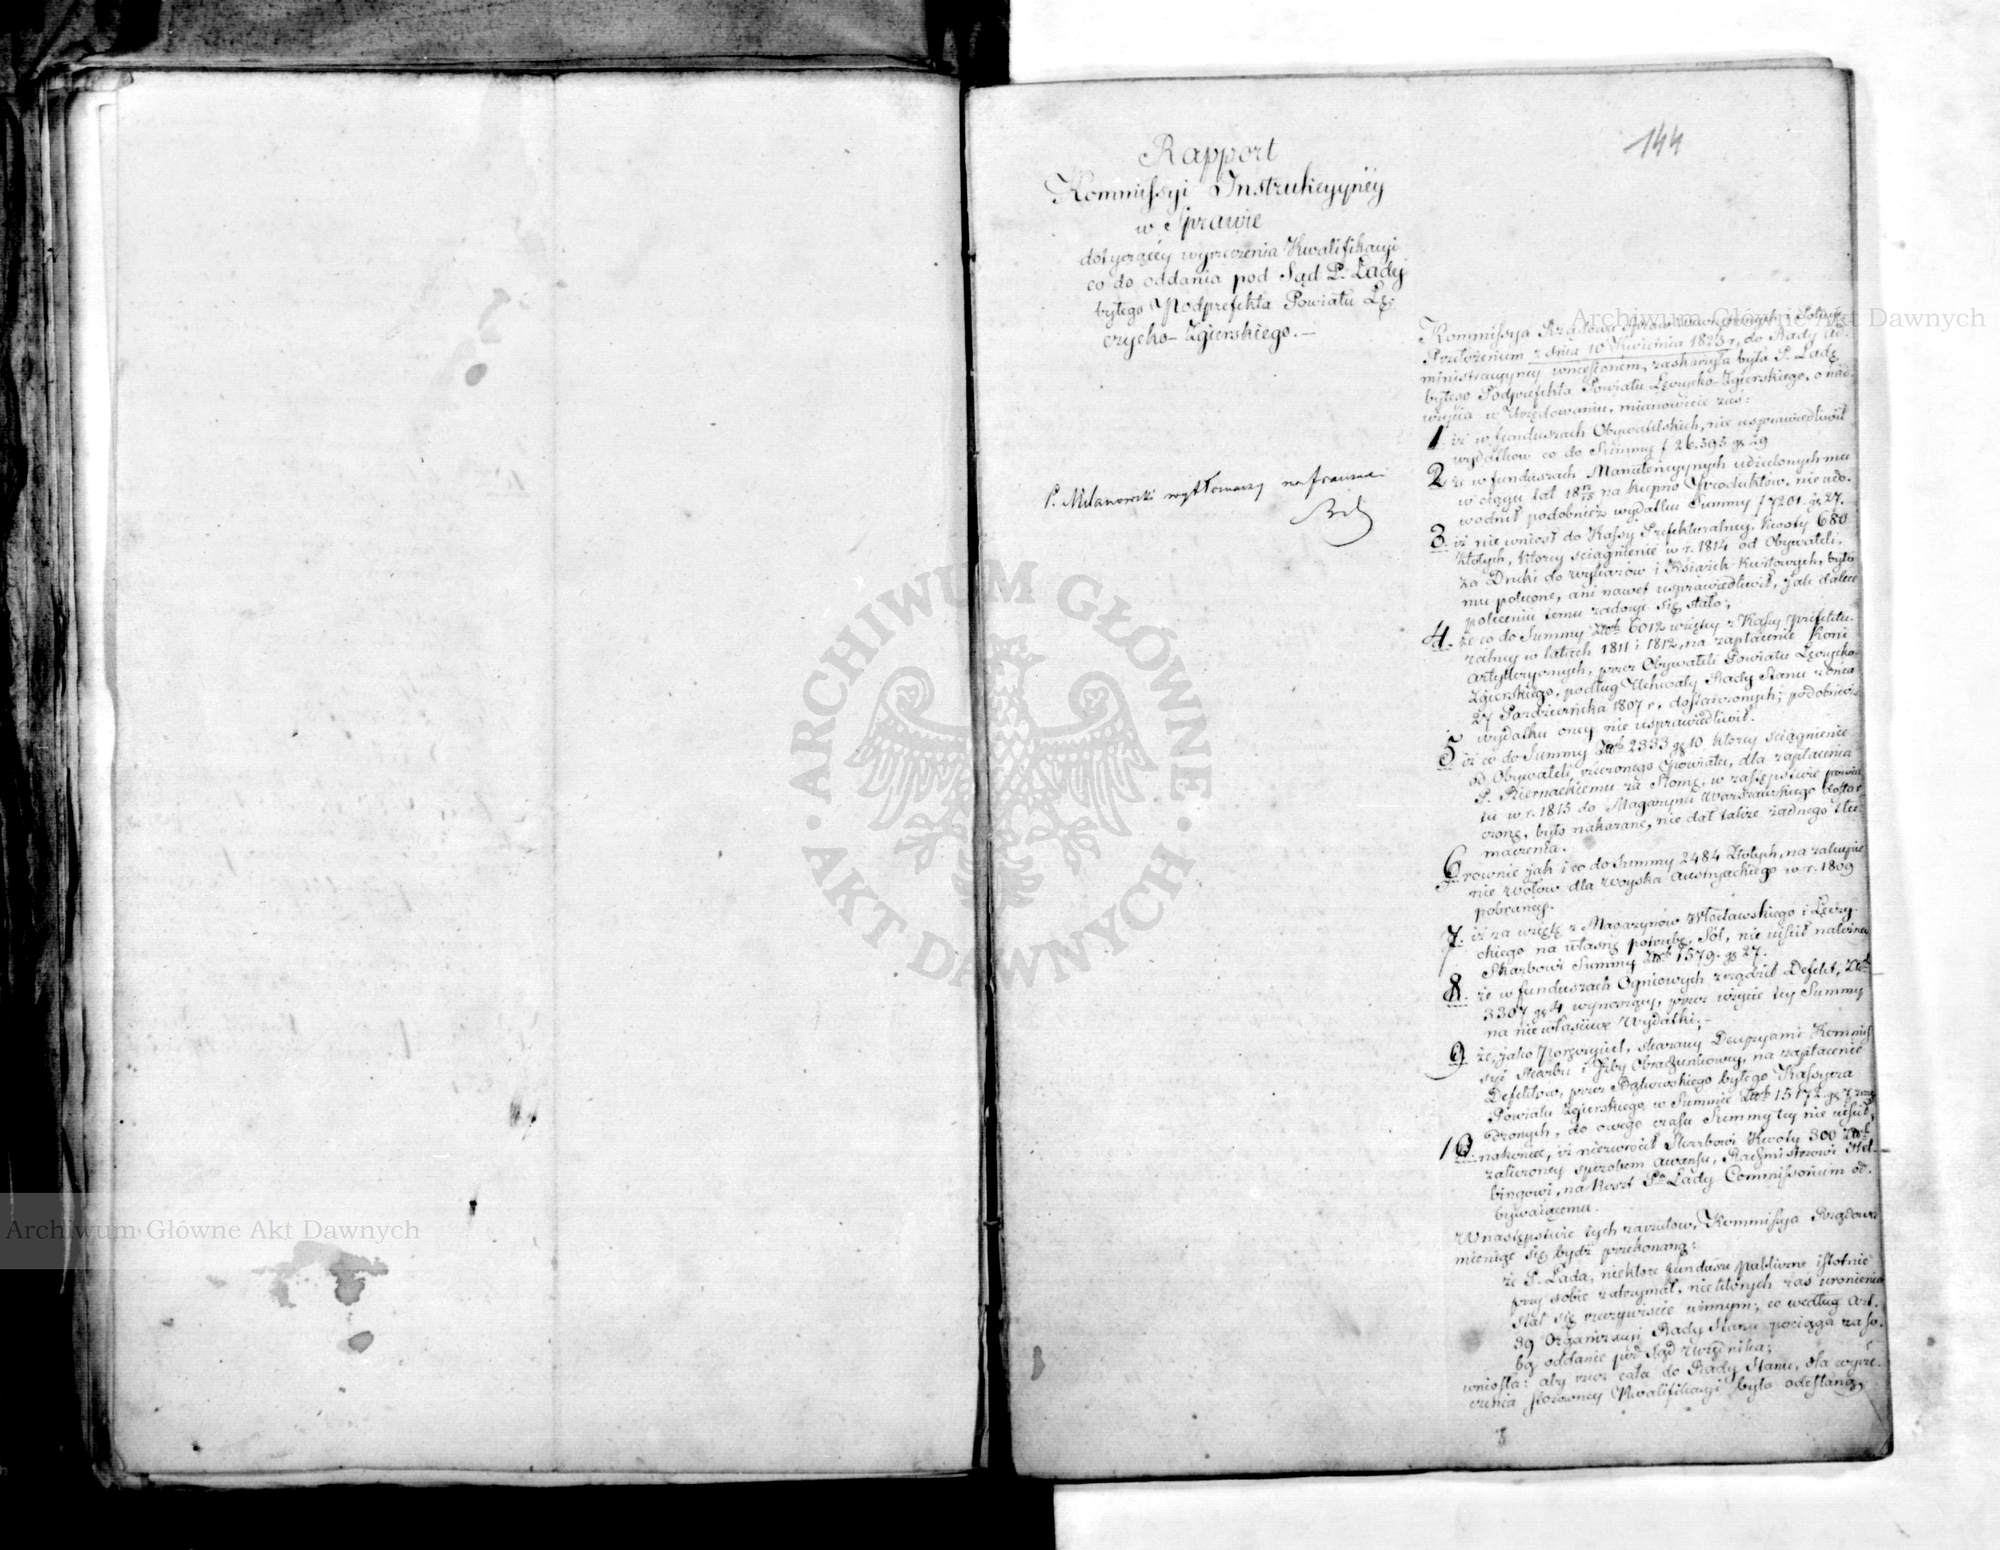 144
Rapport
Kommissyi Instrukcyyney
w Sprawie
dotyczącey wyrzeczenia Kwalifikacyi
co do oddania pod Sąd P. Łady
byłego Podprefekta Powiatu Łę-
czycko-Zgierskiego.—
P. Milanowski wytłomaczy na francuzki
Kommissya Rządowa Spraw Wewnętrznych i Policyi
Przełożeniem z dnia 10 Kwietnia 1823 r, do Rady Ad-
ministracyiney wniesionem, zaskarżyła była P. Ladę
byłego Podprefekta Powiatu Łęczycko-Zgierskiego, o nad-
użycia w Urzędowaniu, mianowicie zaś:
1. iż w funduszach Obywatelskich, nie usprawiedliwił
wydatków co do Summy f 26.393 gr 29
2 że w funduszach Manutencyynych udzielonych mu
w ciągu lat na kupno Produktów, nie udo-
wodnił podobnież wydatku Summy f 7201. gr 27.
3. iż nie wniosł do Kassy Prefekturalney, kwoty 680
Złotych, którey sciągnienie w r. 1814 od Obywateli,
za Druki do wykazów i Książek Kwitowych, było
mu polecone, ani nawet usprawiedliwił, jak dalece
poleceniu temu zadosyć się stało;
4. że co do Summy Złot. 6012 wziętey z Kassy Prefektu-
ralney w latach 1811 i 1812, na zapłacenie Koni
Artylleryynych, przez Obywateli Powiatu Łęczycko-
Zgierskiego, podług Uchwały Rady Stanu z dnia
27 Października 1807 r. dostawionych, podobnież
wydatku oney nie usprawiedliwił.
5 iż co do Summy Złot. 2333 gr 10. którey sciągnienie
od Obywateli rzeczonego Powiatu, dla zapłacenia
P. Biernackiemu za Słomę, w zastępstwie powia-
tu w r. 1813 do Magazynu Warszawskiego dosta-
czoną, było nakazane, nie dał także żadnego tłu-
maczenia.
6 rownie jak i co do Summy 2484 Złotych, na zakupie-
nie wołów dla woyska Austryackiego w r. 1809
pobraney.
7. iż za wziętą z Magazynów Włocławskiego i Łęczy-
ckiego na własną potrzebę, Sól, nie uiścił należney
Skarbowi Summy Złot. 1579. gr 27.
8. że w funduszach Ogniowych zrządził Defekt, Złot.
3307 gr 4 wynoszący, przez użycie tey Summy
na niewłaściwe Wydatki;—
9. że, jako Poręczyciel, skazany Decyzyami Kommis-
syi Skarbu i Izby Obrachunkowey, na zapłacenie
Defektów, przez byłego Kassyera
Powiatu Zgierskiego, w Summie Złot. 15172. gr 7 zrzą-
dzonych, do owego czasu Summy tey nie uiścił,
10. nakoniec, iż niezwrócił Skarbowi Kwoty 300 Złot.
zaliczoney sposobem awansu, Rachmistrzowi Hel-
bingowi, na koszt Pa Łady Commissorium od-
bywaiącemu.
W następstwie tych zarzutów, Kommissya Rządowa
mieniąc się bydź przekonaną:
że P. Łada, niektóre fundusze publiczne istotnie
przy sobie zatrzymał, niektórych zaś uronienia
stał się rzeczywiscie winnym; co według Art.
39 Organizacyi Rady Stanu pociąga za so-
bą oddanie pod Sąd Urzędnika;
wniosła: aby rzecz cała do Rady Stanu, dla wyrze-
czenia stosowney Kwalifikacyi było odesłaną,